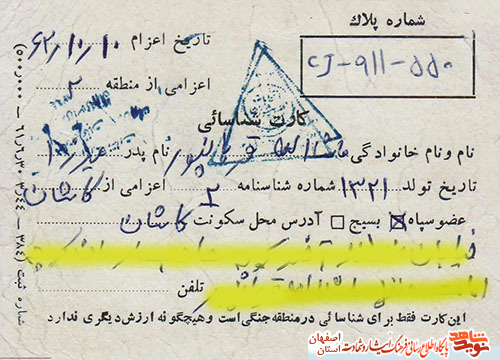 شماره پلاک
CJ-911-550
تاریخ اعزام ۶۲/۱۰/۱۰
اعزامی از منطقه ۲
کارت شناسائی
نام و نام خانوادگی ماشااله نام پدر
تاریخ تولد ۱۳۲۱ شماره شناسنامه ۲ اعزامی از کاشان
عضو سپاه بسیج آدرس محل سکونت کاشان
تلفن
این کارت فقط برای شناسائی در منطقه جنگی است و هیچگونه ارزش دیگری ندارد
شماره ثبت (۳۸۴ـ۳/۴۴ـ۶۱/۶/۳۰ـ۵۰۰/۰۰۰)
نوید شاهد
پایگاه اطلاع رسانی فرهنگ ایثار و شهادت
استان اصفهان